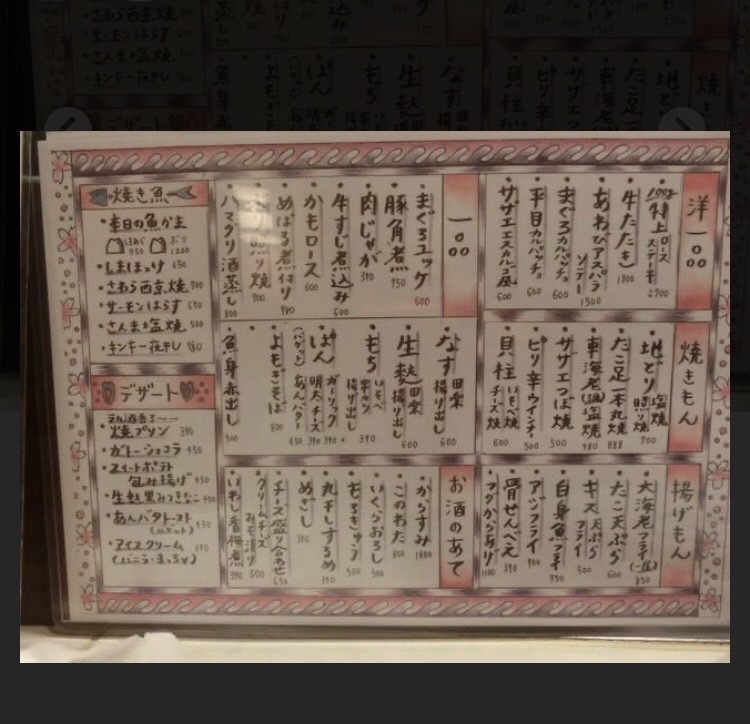 焼き魚
本日の魚かま
750
1200
しまほっけ 650
さわら西京焼 900
サーモンはらす 650
さんま塩焼 500
キンキー夜干し 980
デザート
焼プリン 390
ガトーショコラ 450
スイートポテト
包み揚げ 450
生麩黒みつきなこ 450
あんバタトースト 450
アイスクリーム
一品
まぐろユッケ 600
豚角煮 950
肉じゃが
牛すじ煮込み 600
かもロース 600
めばる煮付け
照り焼 900
ハマグリ酒蒸し 800
なす田楽
揚げ出し 600
生麩田楽
揚げ出し 600
もち
揚げ出し 390
ぱん
ガーリック 390
明太チーズ 390
あんバター 450
よもぎそば 800
魚身赤出し 500
お酒のあて
からすみ 1800
このわた
いくらおろし 500
もろきゅう
丸干しするめ
めざし
チーズ盛り合わせ 650
クリームチーズ
みそ漬け 600
いわし香梅煮
洋一品
100g
特上ロース
ステーキ 2900
牛たたき 1800
あわびアスパラ
ソテー 1500
まぐろカルパッチョ 600
平目カルパッチョ 600
サザエエスカルゴ風 600
焼きもん
地どり
塩焼
照り焼 900
たこ足一本丸焼 888
車海老塩焼 480
サザエつぼ焼 500
ピリ辛ウインナ 500
貝柱
いそべ焼
チーズ焼 600
揚げもん
大海老フライ 850
たこ天ぷら 600
キス
天ぷら
フライ 500
白身魚フライ 950
アジフライ 900
骨せんべえ
フグからあげ 1100